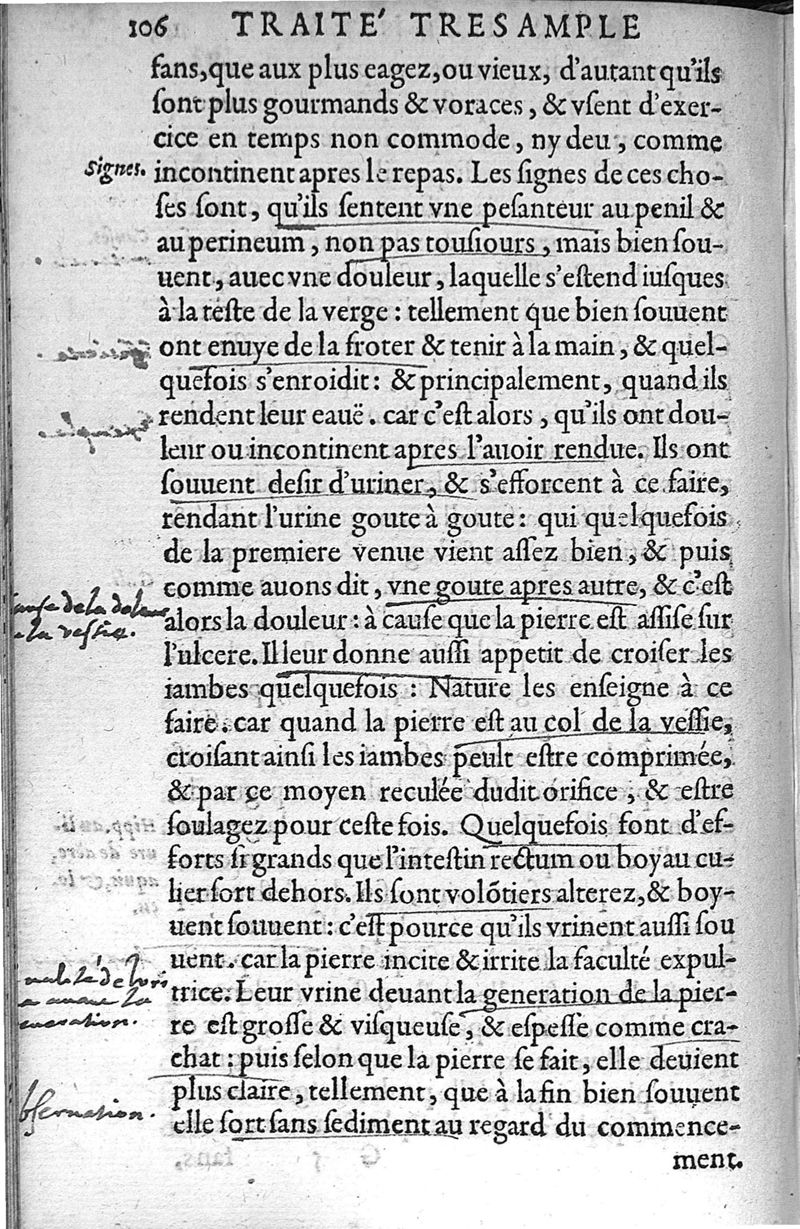 106 TRAITE' TRESAMPLE
fans, que aux plus eagez, ou vieux, d'autant qu'ils
sont plus gourmands & voraces, & vsent d'exer-
cice en temps non commode, ny deu, comme
Signes.
incontinent apres le repas. Les signes de ces cho-
ses sont, qu'ils sentent vne pesanteur au penil &
au perineum, non pas tousiours, mais bien sou-
uent, auec vne douleur, laquelle s'estend iusques
à la teste de la verge: tellement que bien souuent
ont enuye de la froter & tenir à la main, & quel-
quefois s'enroidit: & principalement, quand ils
rendent leur eauë. car c'est alors, qu'ils ont dou-
leur ou incontinent apres l'auoir rendue. Ils ont
souuent desir d'uriner, & s'efforcent à ce faire,
rendant l'urine goute à goute: qui quelquefois
de la premiere venue vient assez bien, & puis
comme auons dit, vne goute apres autre, & c'est
de la
alors la douleur: à cause que la pierre est assise sur
la vessie.
l'ulcere. Il leur donne aussi appetit de croiser les
iambes quelquefois: Nature les enseigne à ce
faire. car quand la pierre est au col de la vessie,
croisant ainsi les iambes peult estre comprimée,
& par ce moyen reculée dudit orifice, & estre
soulagez pour ceste fois. Quelquefois font d'ef-
forts si grands que l'intestin rectum ou boyau cu-
lier sort dehors. Ils sont volõtiers alterez, & boy-
uent souuent: c'est pource qu'ils vrinent aussi sou
uent. car la pierre incite & irrite la faculté expul-
trice. Leur vrine deuant la generation de la pier-
re est grosse & visqueuse, & espesse comme cra-
chat: puis selon que la pierre se fait, elle deuient
plus claire, tellement, que à la fin bien souuent
elle sort sans sediment au regard du commence-
ment.